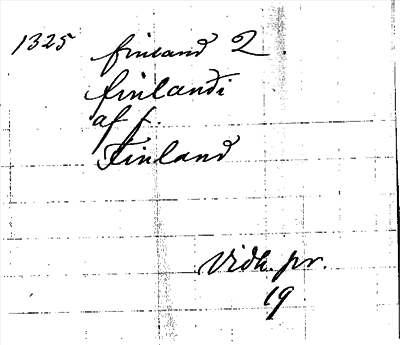 1325 finland 2.
finlandi
af f.
Finland
Vidk. pr.
19